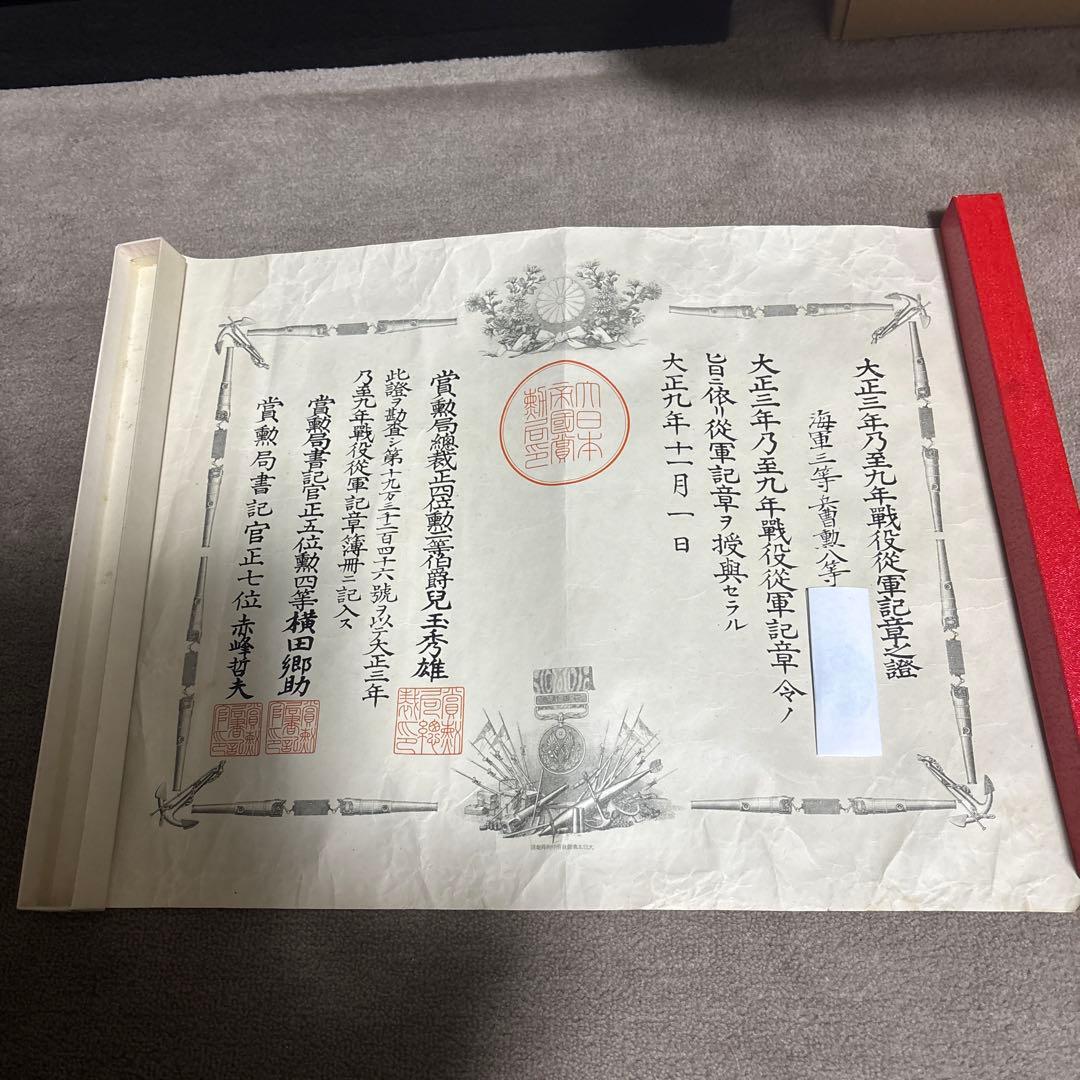 大正三年乃至九年戰役從軍記章之證
海軍三等兵曹勲八等
大正三年乃至九年戰役從軍記章令ノ
旨ニ依リ從軍記章ヲ授與セラル
大正九年十一月一日
大日本
帝國賞
勲局印
賞勲局總裁正四位勲一等伯爵兒玉秀雄
此證ヲ勘査シ第十九万三千二百四十六號ヲ以テ大正三年
乃至九年戰役從軍記章簿冊ニ記入ス
賞勲局書記官正五位勲四等横田郷助
賞勲局書記官正七位赤峰哲夫